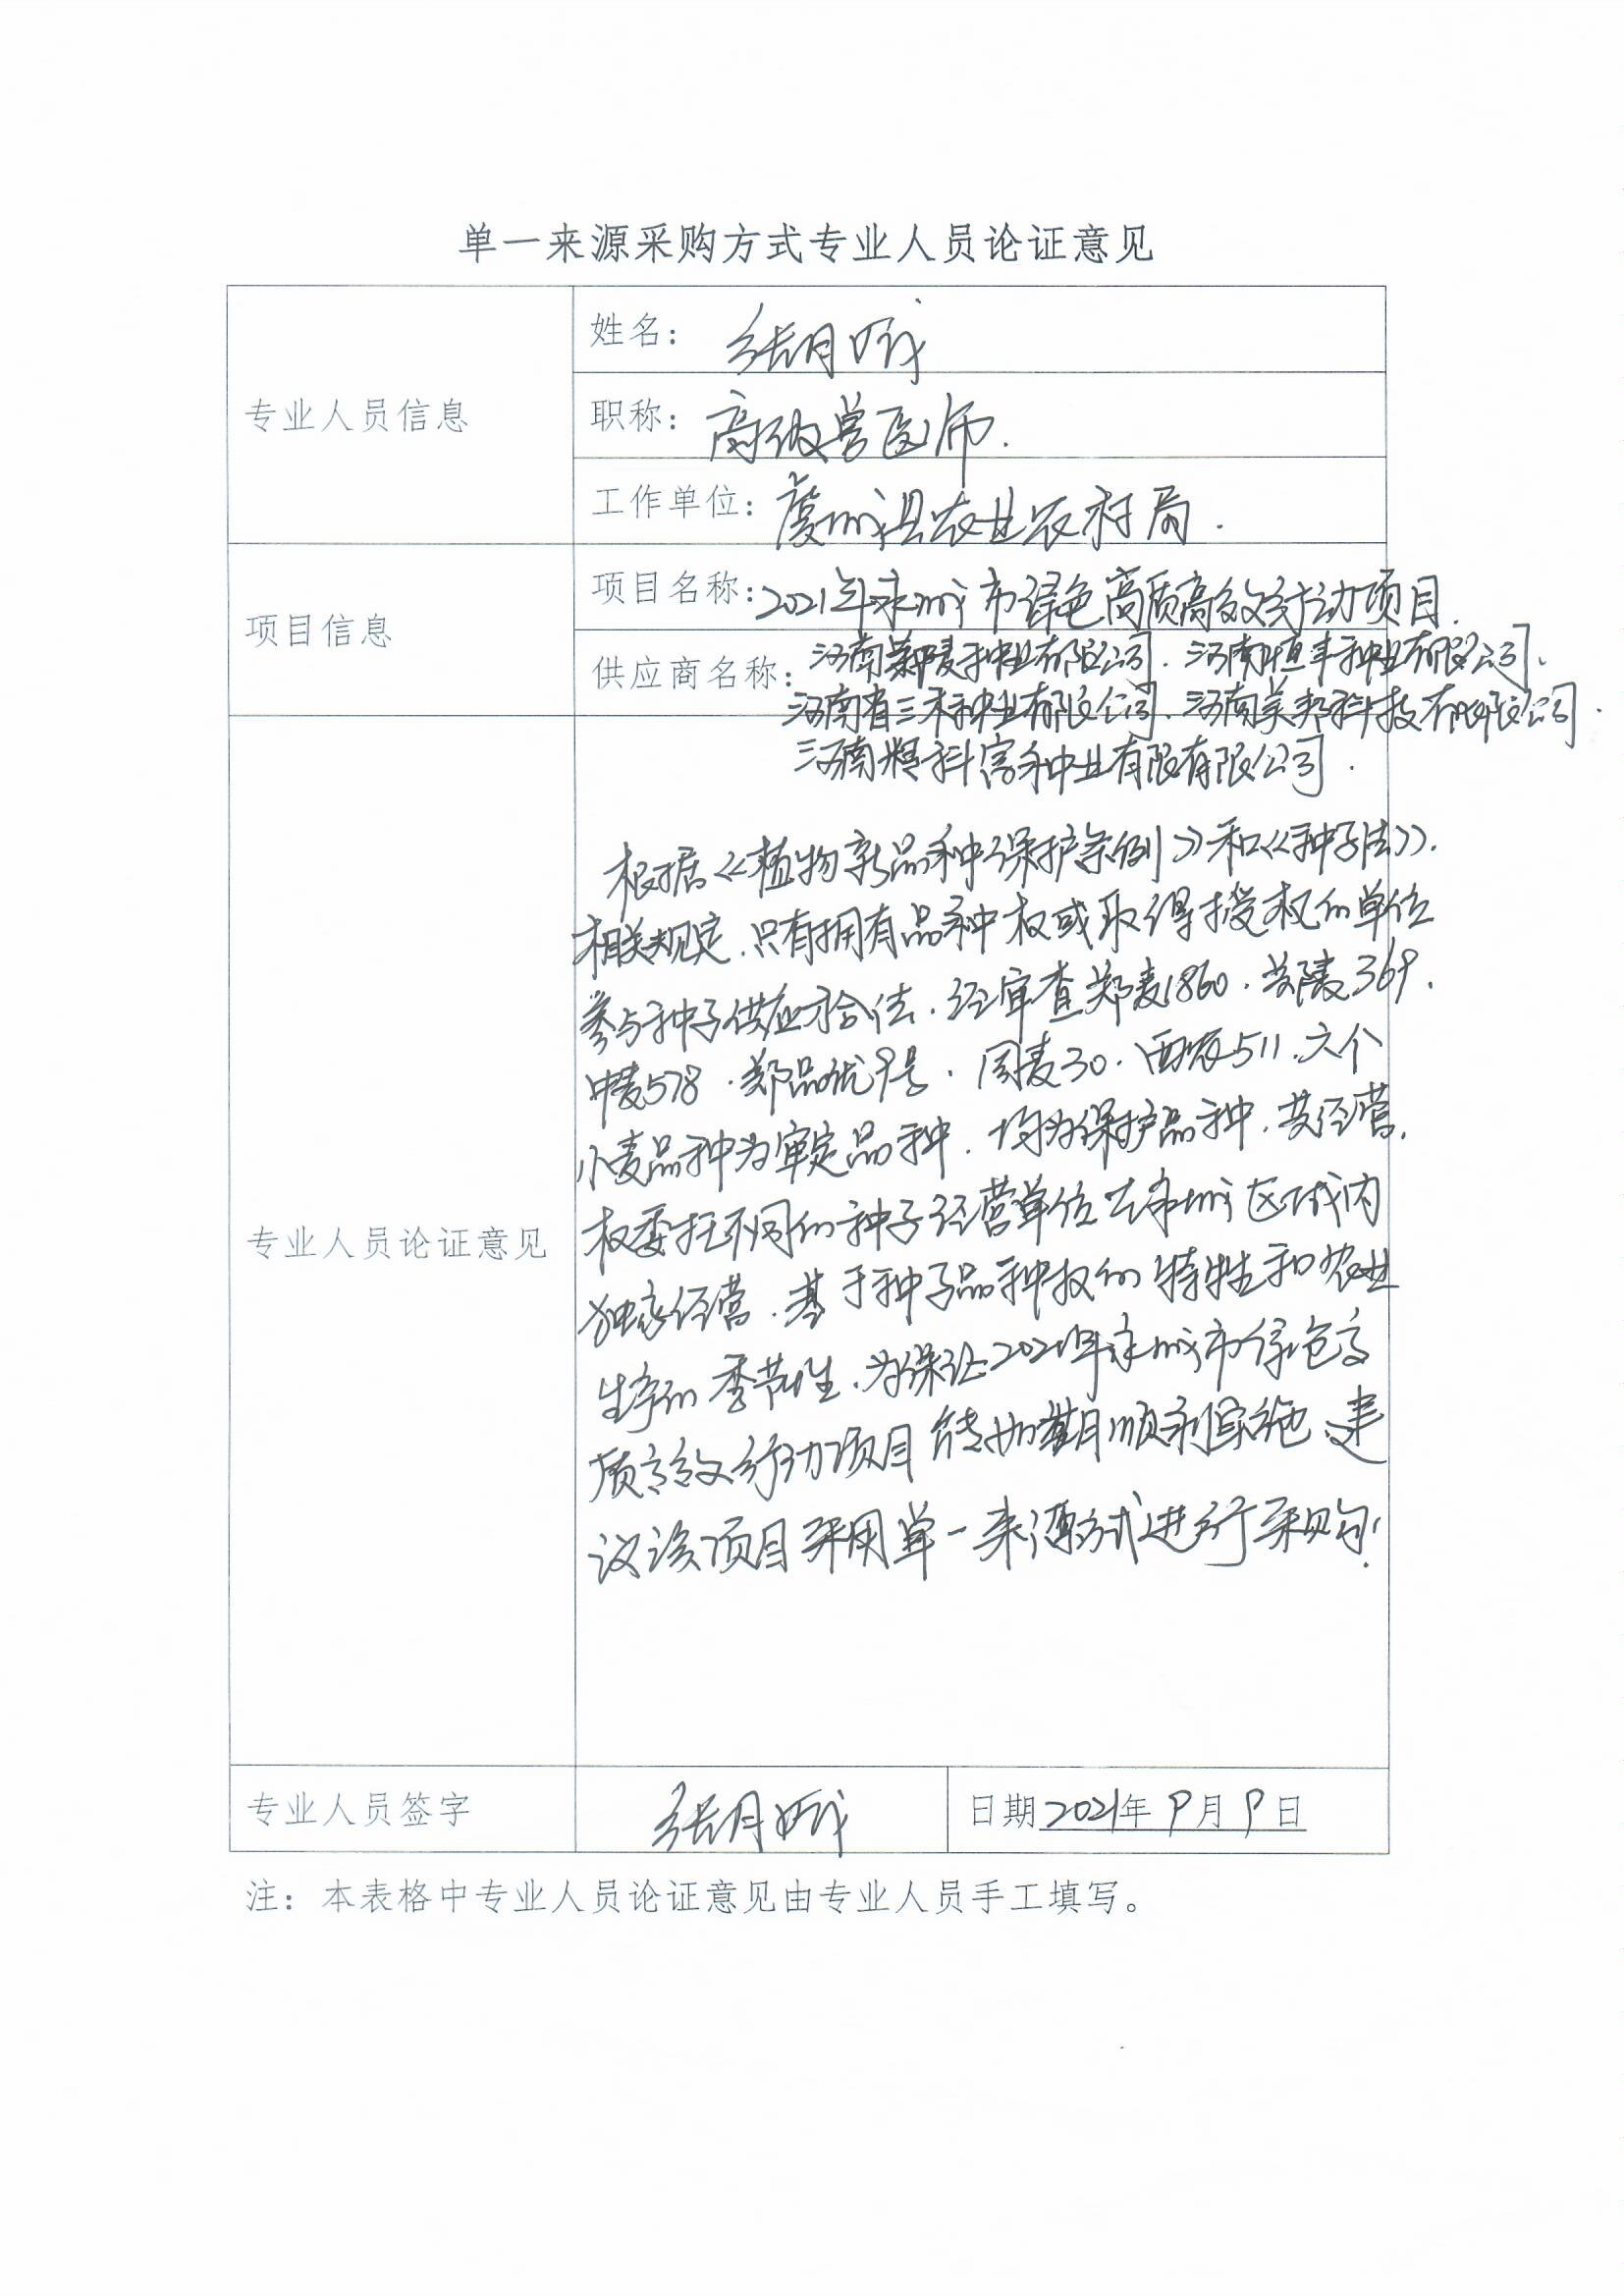 单一来源采购方式专业人员论证意见
专业人员信息
姓名：张月
职称：高级兽医师.
工作单位：虞城县农业农村局.
项目信息
项目名称：2021年永城市绿色高质高效行动项目.
供应商名称：河南 麦种业有限公司.河南恒丰种业有限公司、
河南省三禾种业有限公司、河南美邦科技有限公司.
河南精科富种业有限有限公司.
专业人员论证意见
根据《植物新品种保护条例》和《种子法》.
相关规定.只有拥有品种权或取得授权的单位
参与种子供应才合法.经审查郑麦1860.兰陵麦369.
中麦578.郑品优9号.周麦30.西农511.六个
小麦品种为审定品种.均为保护品种.其经营.
权委托不同的种子经营单位在永城区域内
独家经营.基于种子品种权的特性和农业
生产的季节性.为保证2021年永城市绿色高
质高效行动项目能如期顺利实施.建
议该项目采用单一来源方式进行采购.
专业人员签字
张月
日期2021年9月9日
注：本表格中专业人员论证意见由专业人员手工填写。